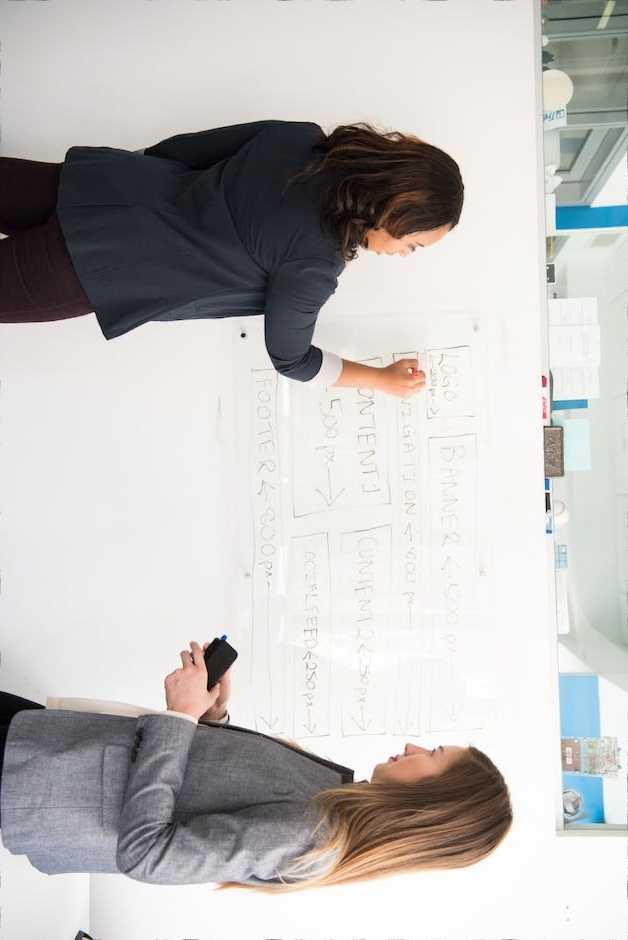 LOGO
←200px→
BANNER ← 500 px →
VIGATION ← 800 px →
ONTENT 1
500 px →
CONTENT 2 ← 250px →
SOCIAL FEED ← 250px →
FOOTER ← 800px →